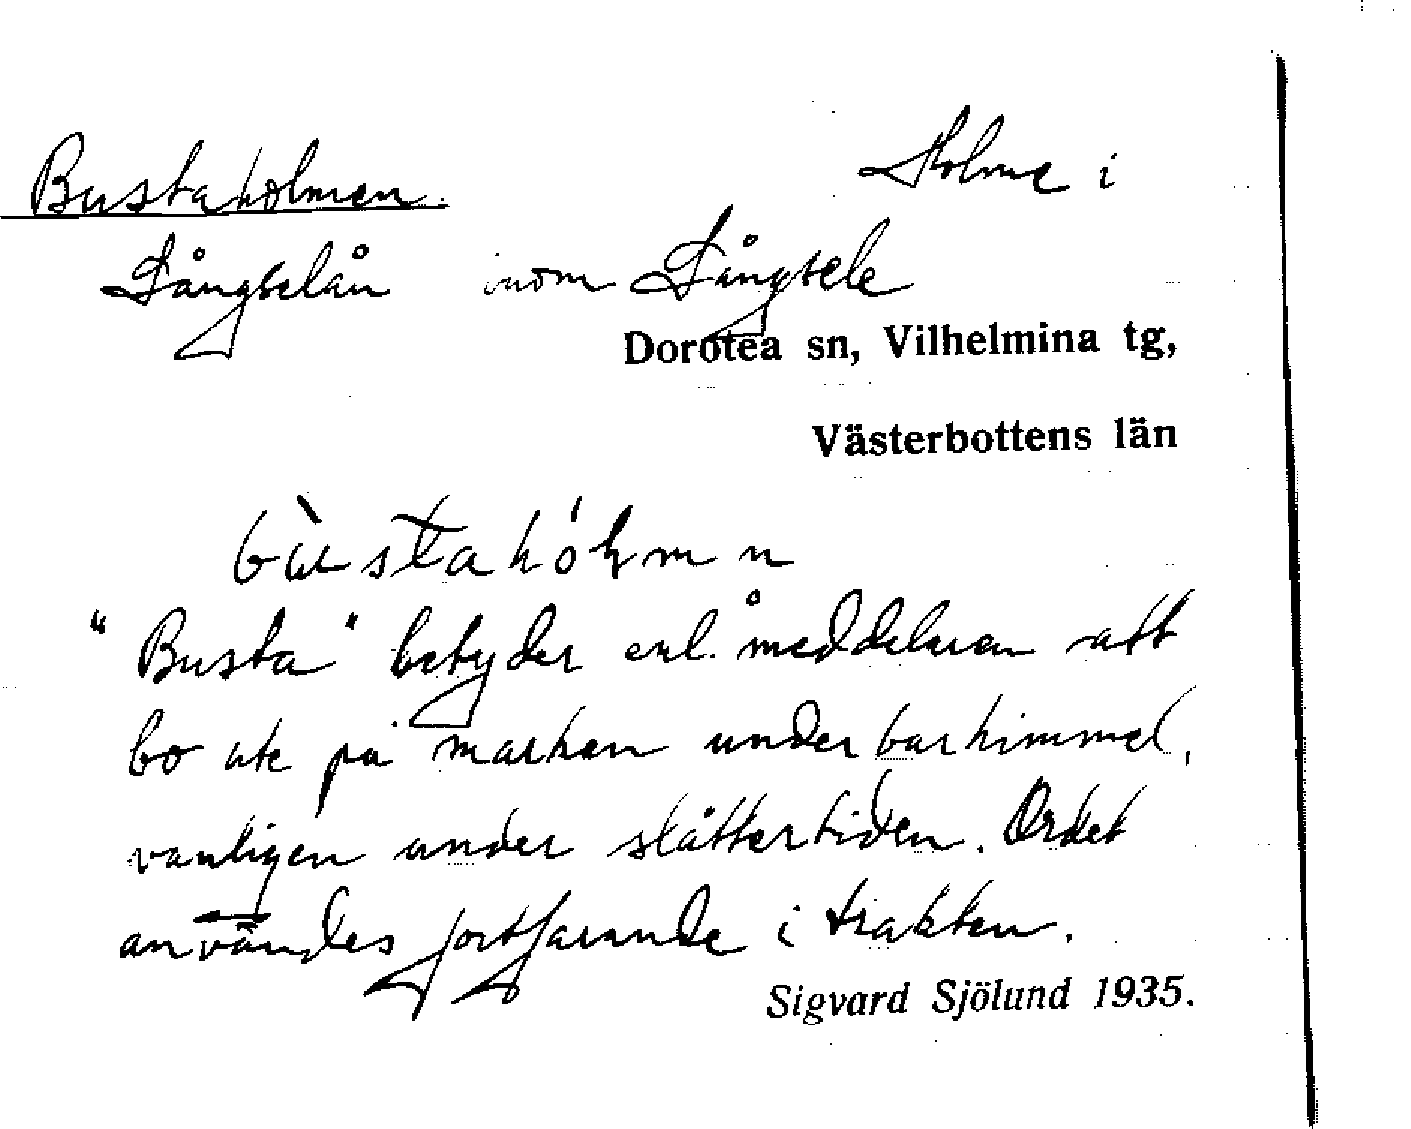 Bustaholmen.
Holme i
Långselån inom Långsele
Dorotea sn, Vilhelmina tg,
Västerbottens län
bùstahólmn
"Busta" betyder enl. meddelaren att
bo ute på marken under bar himmel,
vanligen under slåttertiden. Ordet
användes fortfarande i trakten.
Sigvard Sjölund 1935.